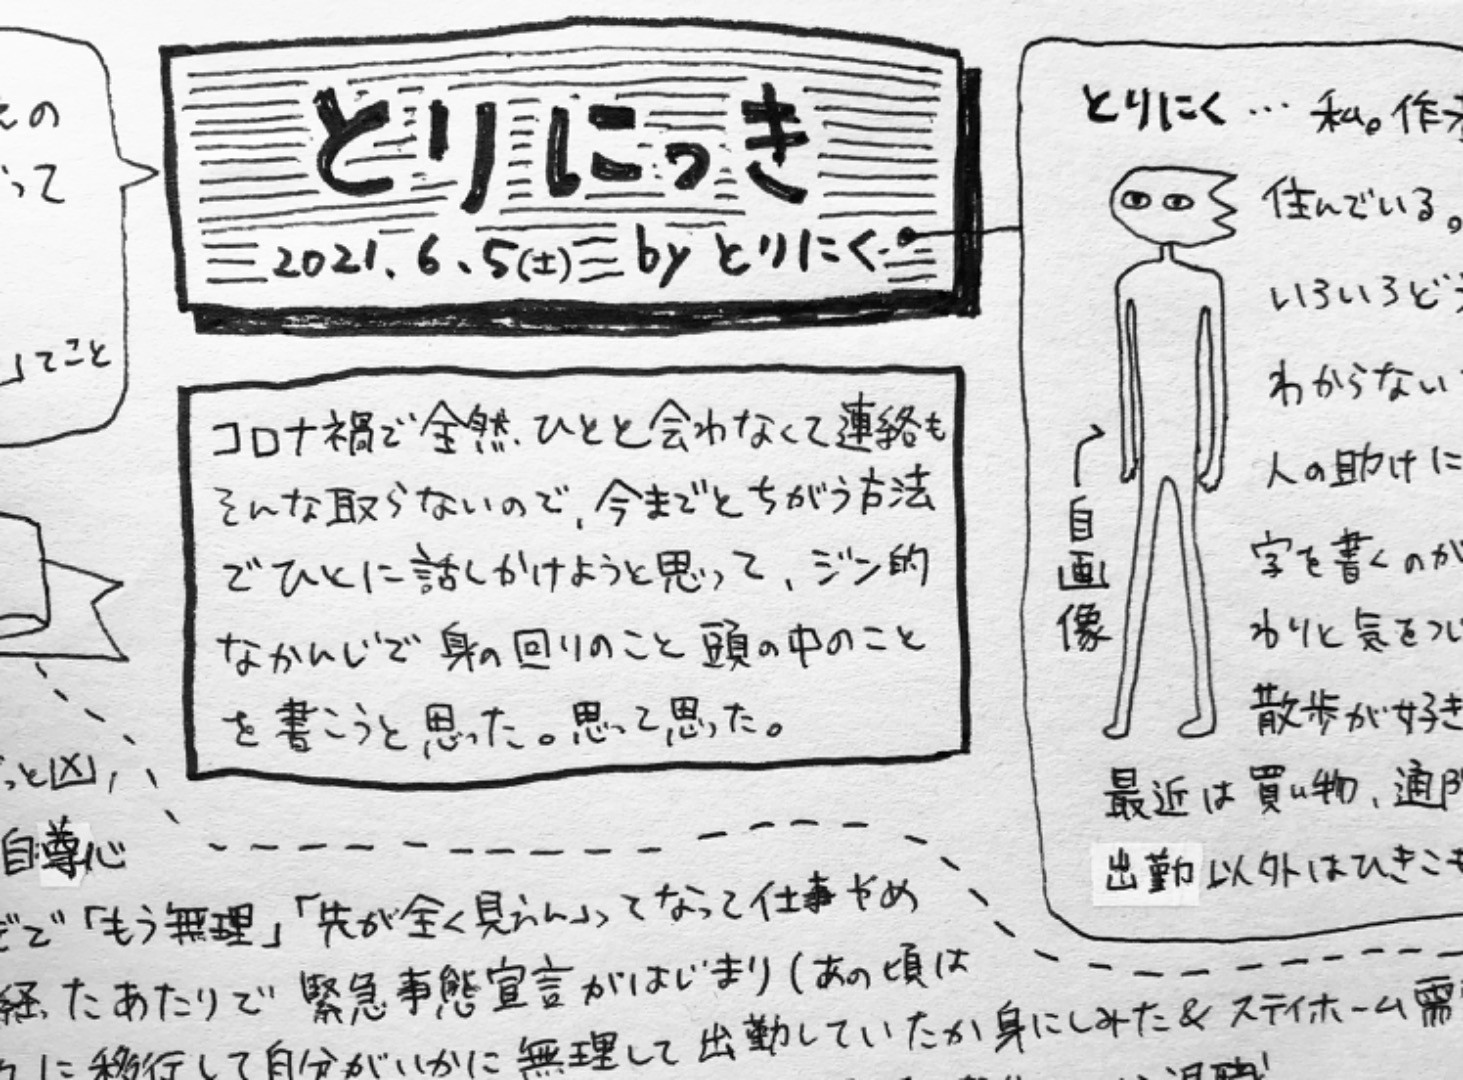 とりにっき
2021.6.5(土) by とりにく
コロナ禍で全然、ひとと会わなくて連絡も
そんな取らないので、今までとちがう方法
でひとに話しかけようと思って、ジン的
なかんじで身の回りのこと頭の中のこと
を書こうと思った。思って思った。
えの
って
」てこと
とりにく… 私。作
住んでいる。
いろいろどう
わからない
人の助けに
字を書くのが
わりと気をつ
散歩が好き
最近は買い物、通
出勤以外はひきこも
自画像
っと凶」,
自尊心
どで「もう無理」「先が全く見えん」ってなって仕事やめ
経ったあたりで緊急事態宣言がはじまり(あの頃は
に移行して自分がいかに無理して出勤していたか身にしみた&ステイホーム需
退職